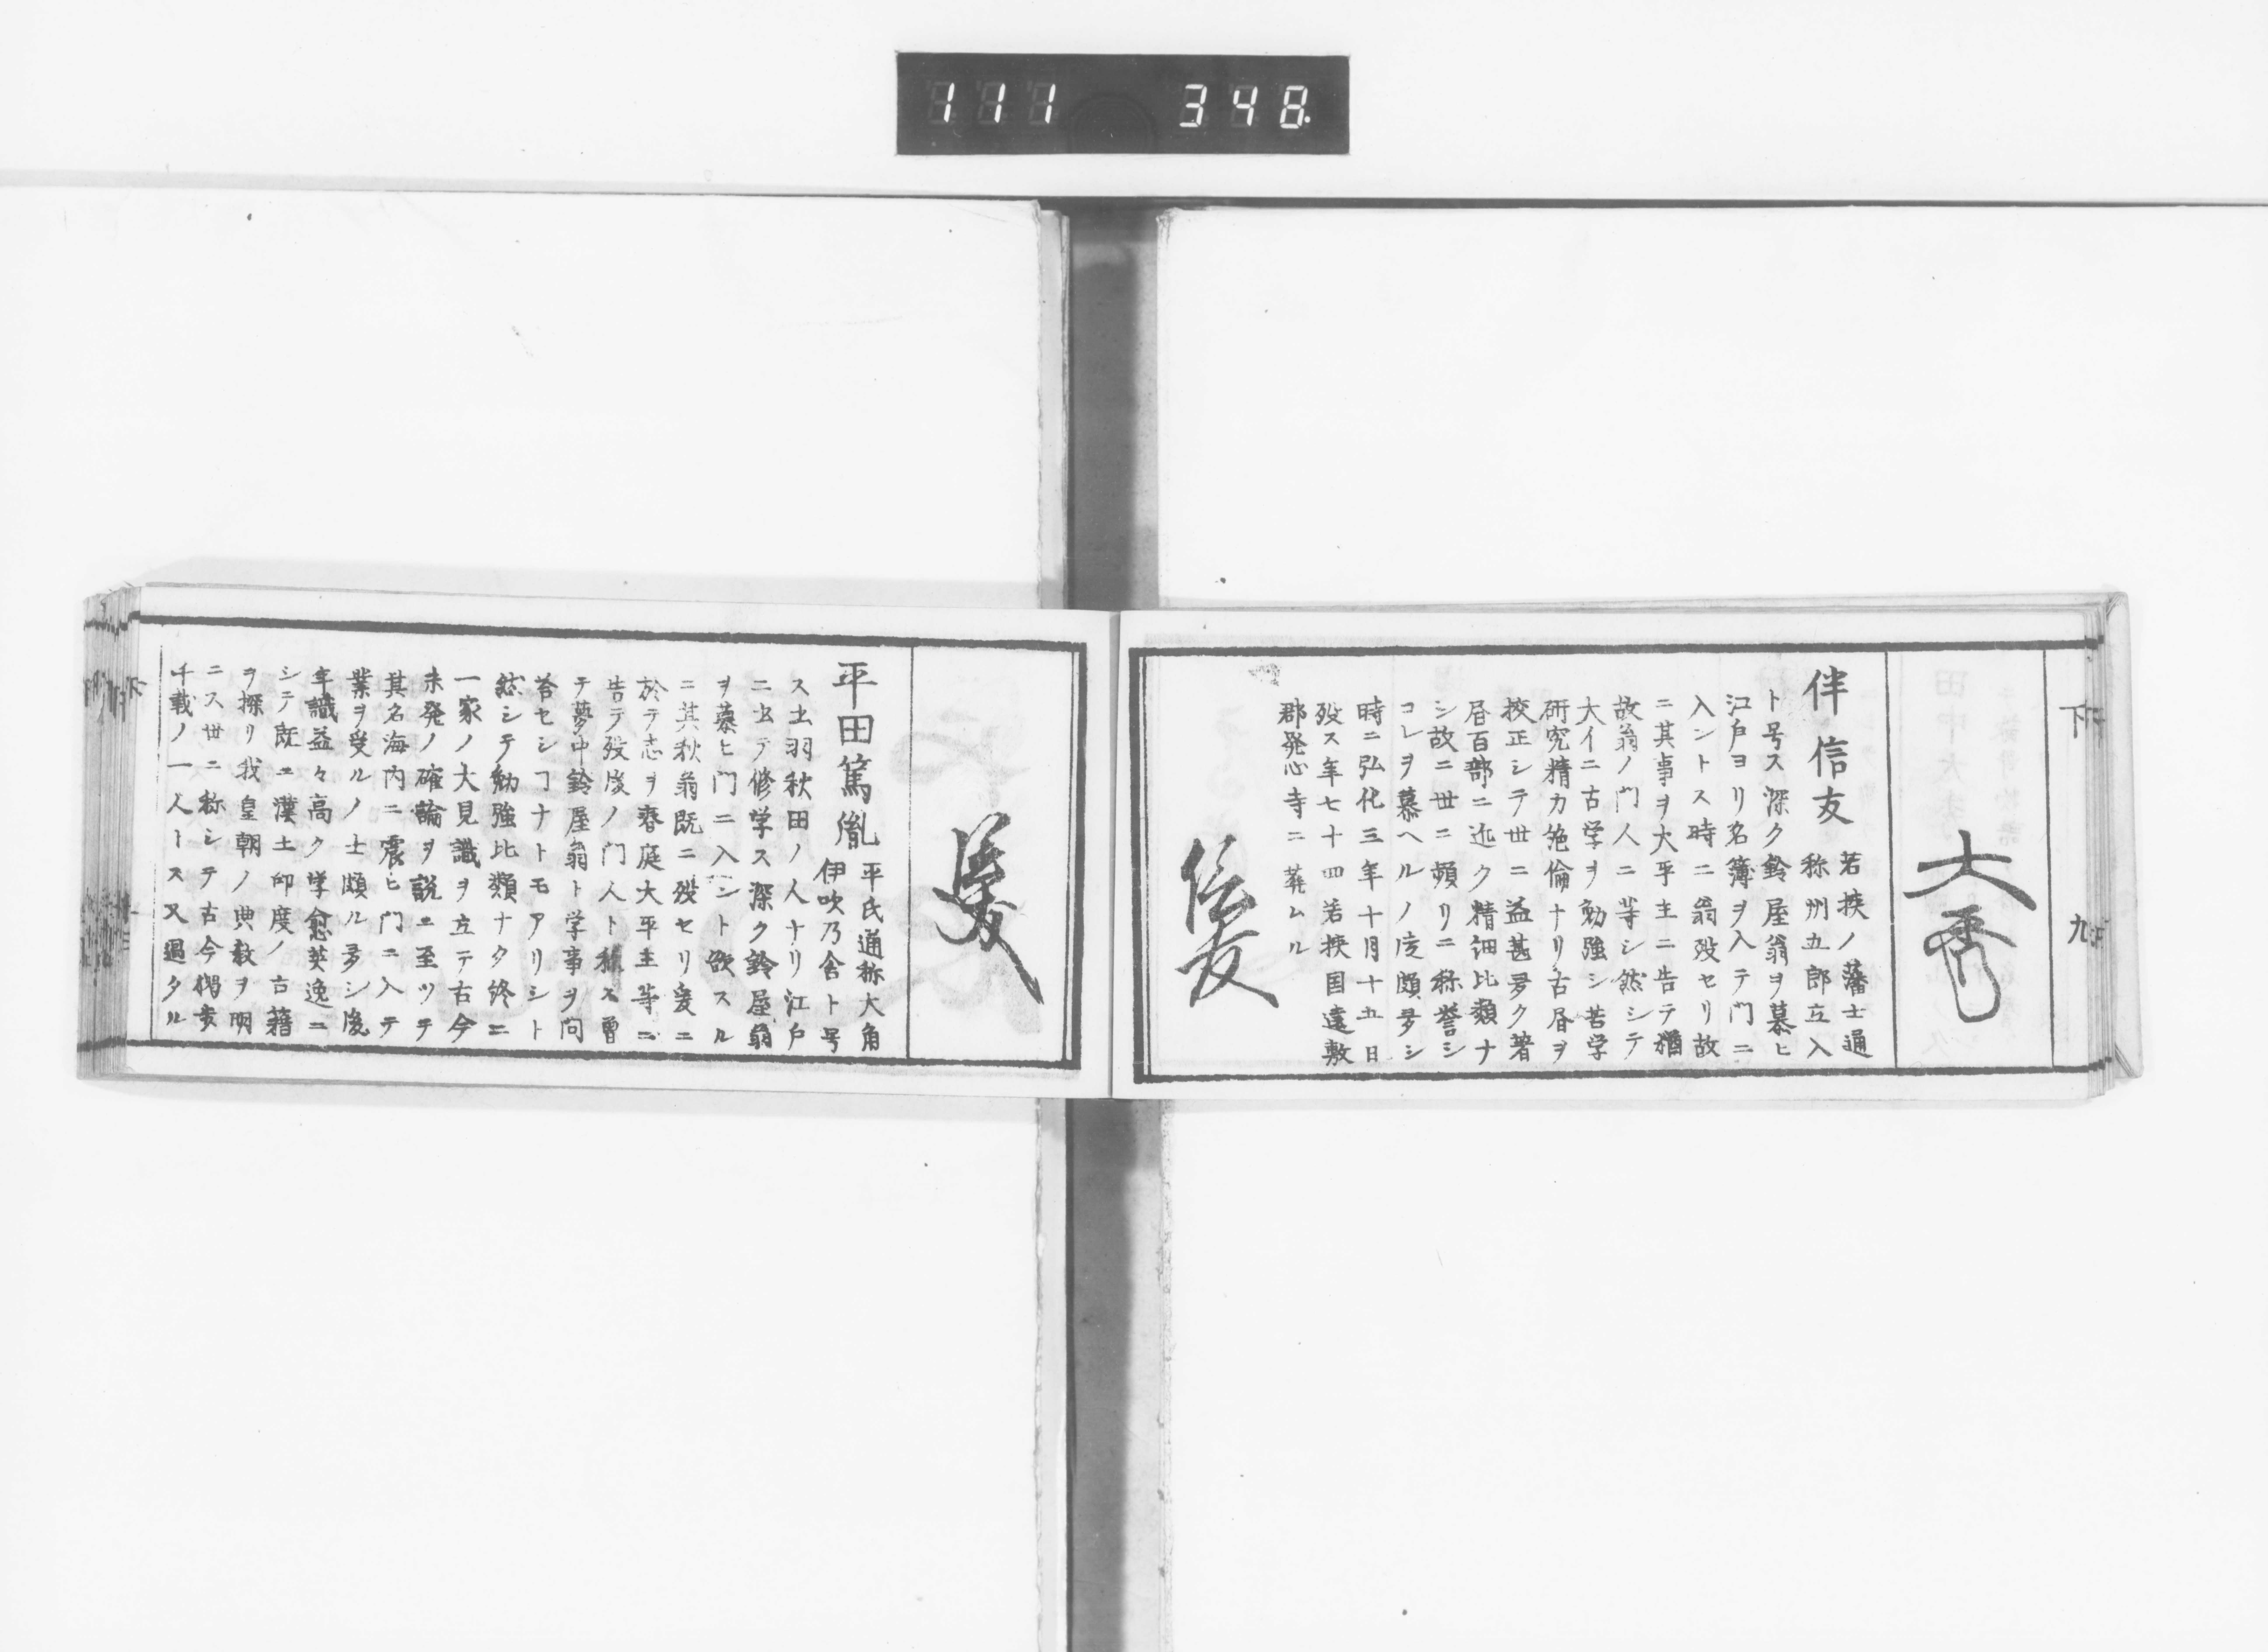 111 348.
下 九
大秀
伴信友 若狭ノ藩士通
称州五郎立入
ト号ス深ク鈴屋翁ヲ慕ヒ
江戸ヨリ名簿ヲ入テ門ニ
入ントス時ニ翁歿セリ故
ニ其事ヲ大平主ニ告テ猶
故翁ノ門人ニ等シ然シテ
大イニ古学ヲ勉強シ苦学
研究精力絶倫ナリ古昏ヲ
校正シテ世ニ益甚多ク著
昏百部ニ近ク精細比類ナ
シ故ニ世ニ頻リニ称誉シ
コレヲ慕ヘルノ徒頗多シ
時ニ弘化三年十月十五日
歿ス年七十四若狭国遠敷
郡発心寺ニ葬ムル
信友
平田篤胤 平氏通称大角
伊吹乃舎ト号
ス出羽秋田ノ人ナリ江戸
ニ出テ修学ス深ク鈴屋翁
ヲ慕ヒ門ニ入ント欲スル
ニ其秋翁既ニ歿セリ爰ニ
於テ志ヲ春庭大平主等ニ
告テ歿後ノ門人ト称ス曽
テ夢中鈴屋翁ト学事ヲ問
答セシヿナトモアリシト
然シテ勉強比類ナク終ニ
一家ノ大見識ヲ立テ古今
未発ノ確論ヲ説ニ至ツテ
其名海内ニ震ヒ門ニ入テ
業ヲ受ルノ士頗ル多シ後
年識益々高ク学愈英逸ニ
シテ既ニ漢土印度ノ古籍
ヲ探リ我皇朝ノ典教ヲ明
ニス世ニ称シテ古今独歩
千載ノ一人トス又過タル
下